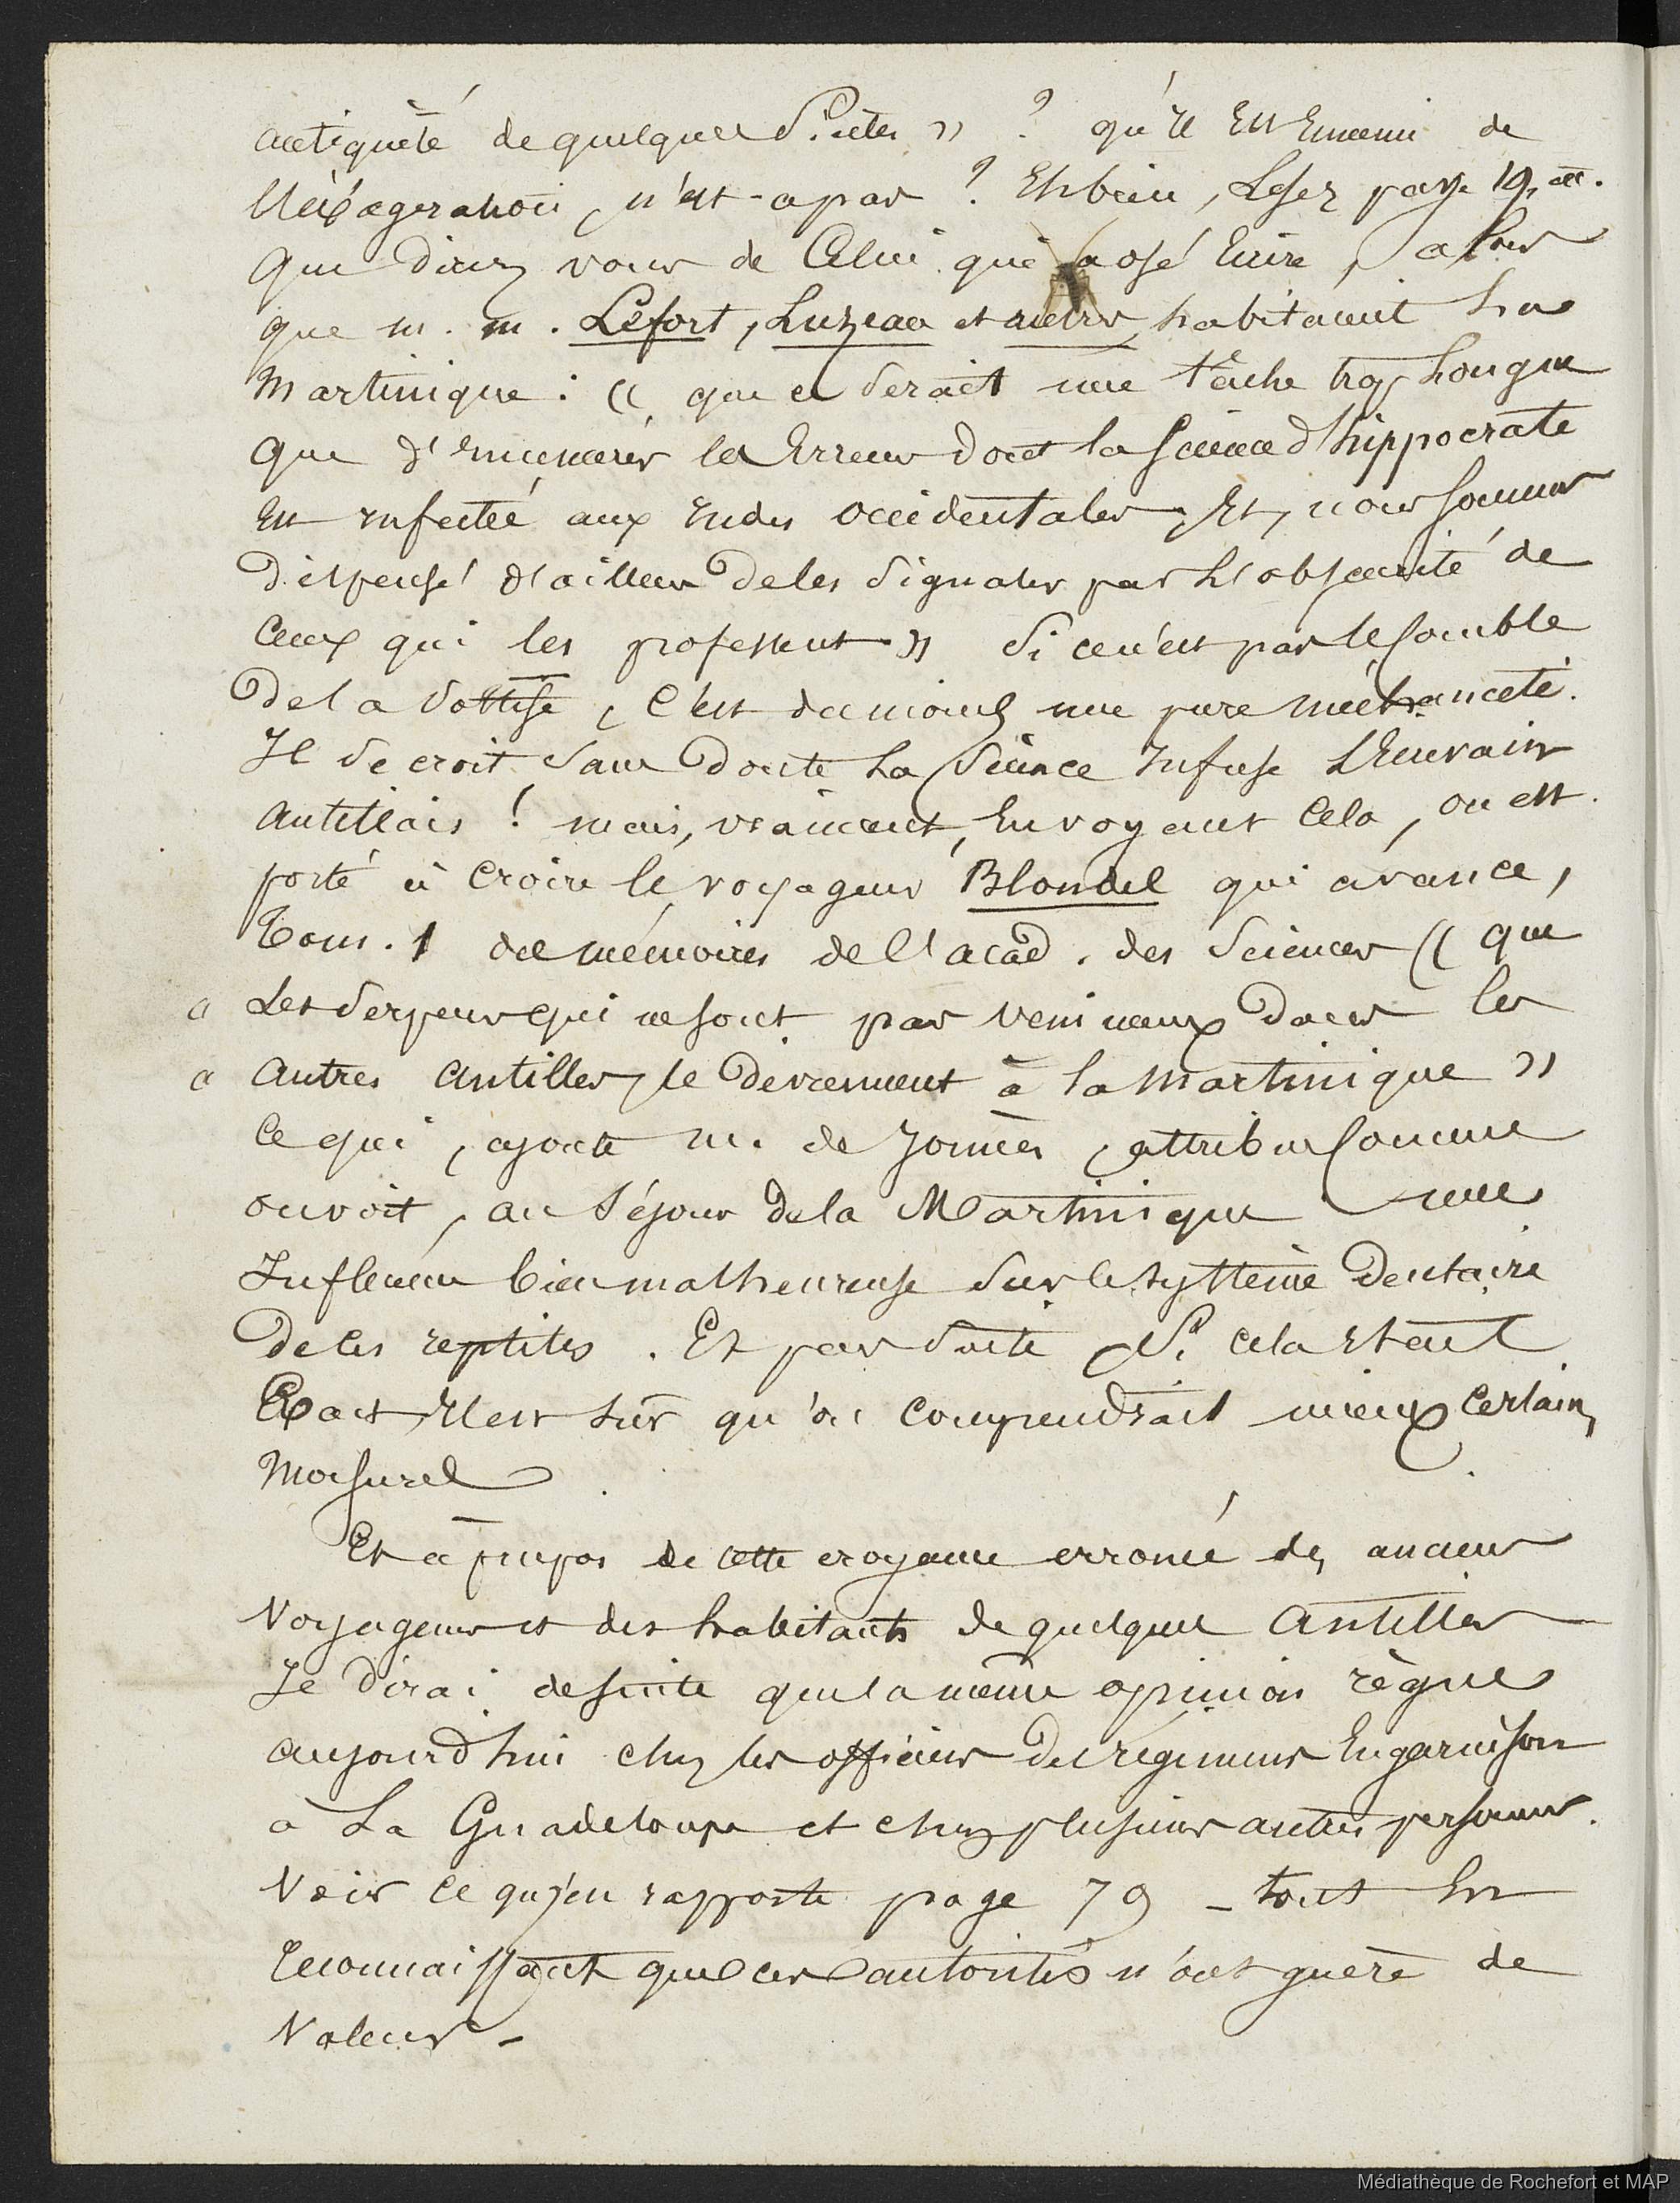 antiquité de quelques siècles » ? qu'il est Ennemi de
l'éxagération, n'est-ce pas ? Eh bien, Lisez page 19, et.
Que direz vous de Celui qui a osé Ecrire, alors
que m. m. Lefort, Luzeau et autres, habitaient La
Martinique : « que ce serait une tâche trop Longue
que d'Enumérer les Erreurs dont la Science d'hippocrate
Est infectée aux Indes Occidentales, Et, nous sommes
dispensé d'ailleurs de les signaler par L'obscurité de
Ceux qui les professent » Si ce n'est pas le Comble
de la Sottise, C'est du moins une pure méchanceté.
Il se croit sans doute La Science Infuse L'Ecrivain
antillais ! mais, vraiment, En voyant Cela, on est
porté à Croire le voyageur Blondel qui avance,
Tom. 1 des mémoires de l'acad. des Sciences « que
« Les Serpens qui ne sont pas venimeux dans les
« autres antilles, le deviennent à la Martinique »
Ce qui, ajoute m. de Jonnès, attribue Comme
on voit, au Séjour de la Martinique une
Influence bien malheureuse sur le système dentaire
de ces reptiles. Et par suite, Si cela Etait
Exact, Il est sûr qu'on comprendrait mieux Certain,
Et à propos de cette croyance erronée des anciens
Voyageurs et des habitants de quelques Antilles
Je dirai de suite que la même opinion règne
aujourd'hui chez les officiers des régimens En garnison
à La Guadeloupe et chez plusieurs autres personnes.
Voir Ce qu'jen rapporte page 79 – tout En
Reconnaissant que ces autorités n'ont guère de
Valeur –
Médiathèque de Rochefort et MAP